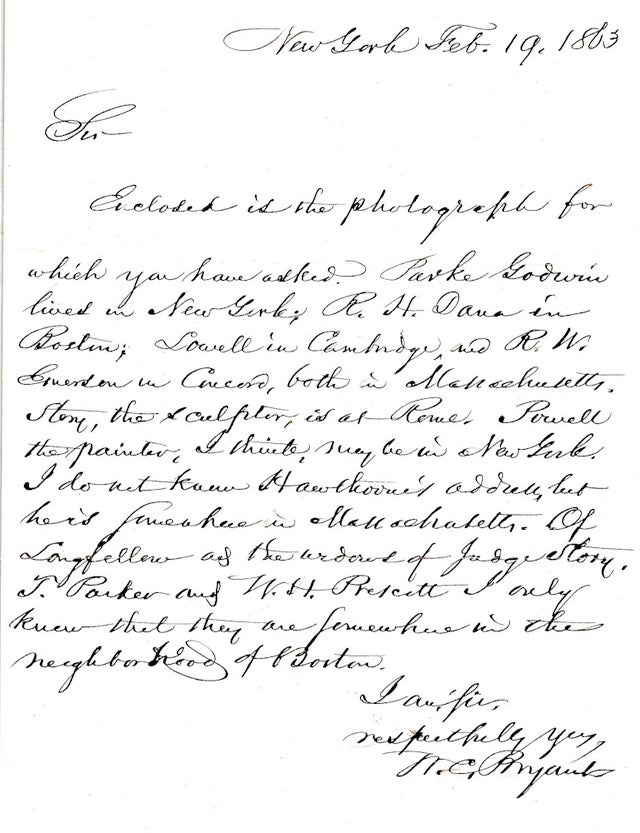 New York Feb. 19. 1863
Sir
Enclosed is the photograph for
which you have asked. Parke Godwin
lives in New York; R. H. Dana in
Boston; Lowell in Cambridge, and R. W.
Emerson in Concord, both in Massachusetts.
Story, the sculptor, is at Rome. Powell
the painter, I think, may be in New York.
I do not know Hawthorne's address, but
he is somewhere in Massachusetts. Of
Longfellow and the widows of Judge Story,
T. Parker and W. H. Prescott I only
know that they are somewhere in the
neighborhood of Boston.
I am, sir,
respectfully yrs,
W. C. Bryant